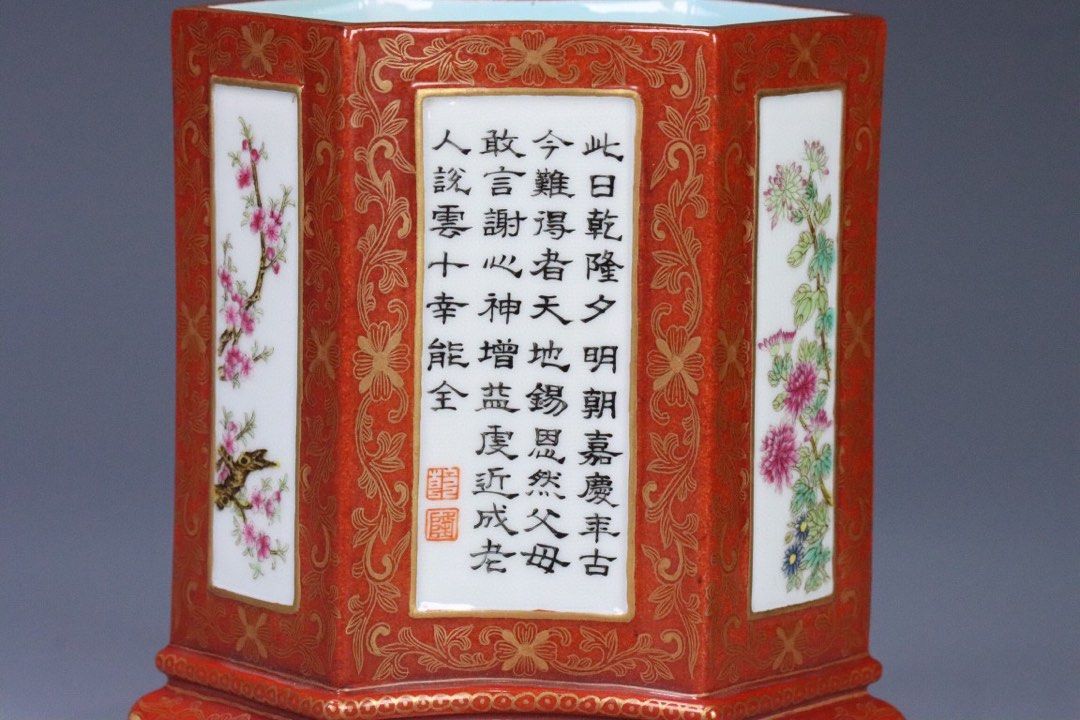 此日乾隆夕明朝嘉慶年古
今難得者天地錫恩然父母
敢言謝心神增益虔近成老
人說雲十幸能全
乾
隆